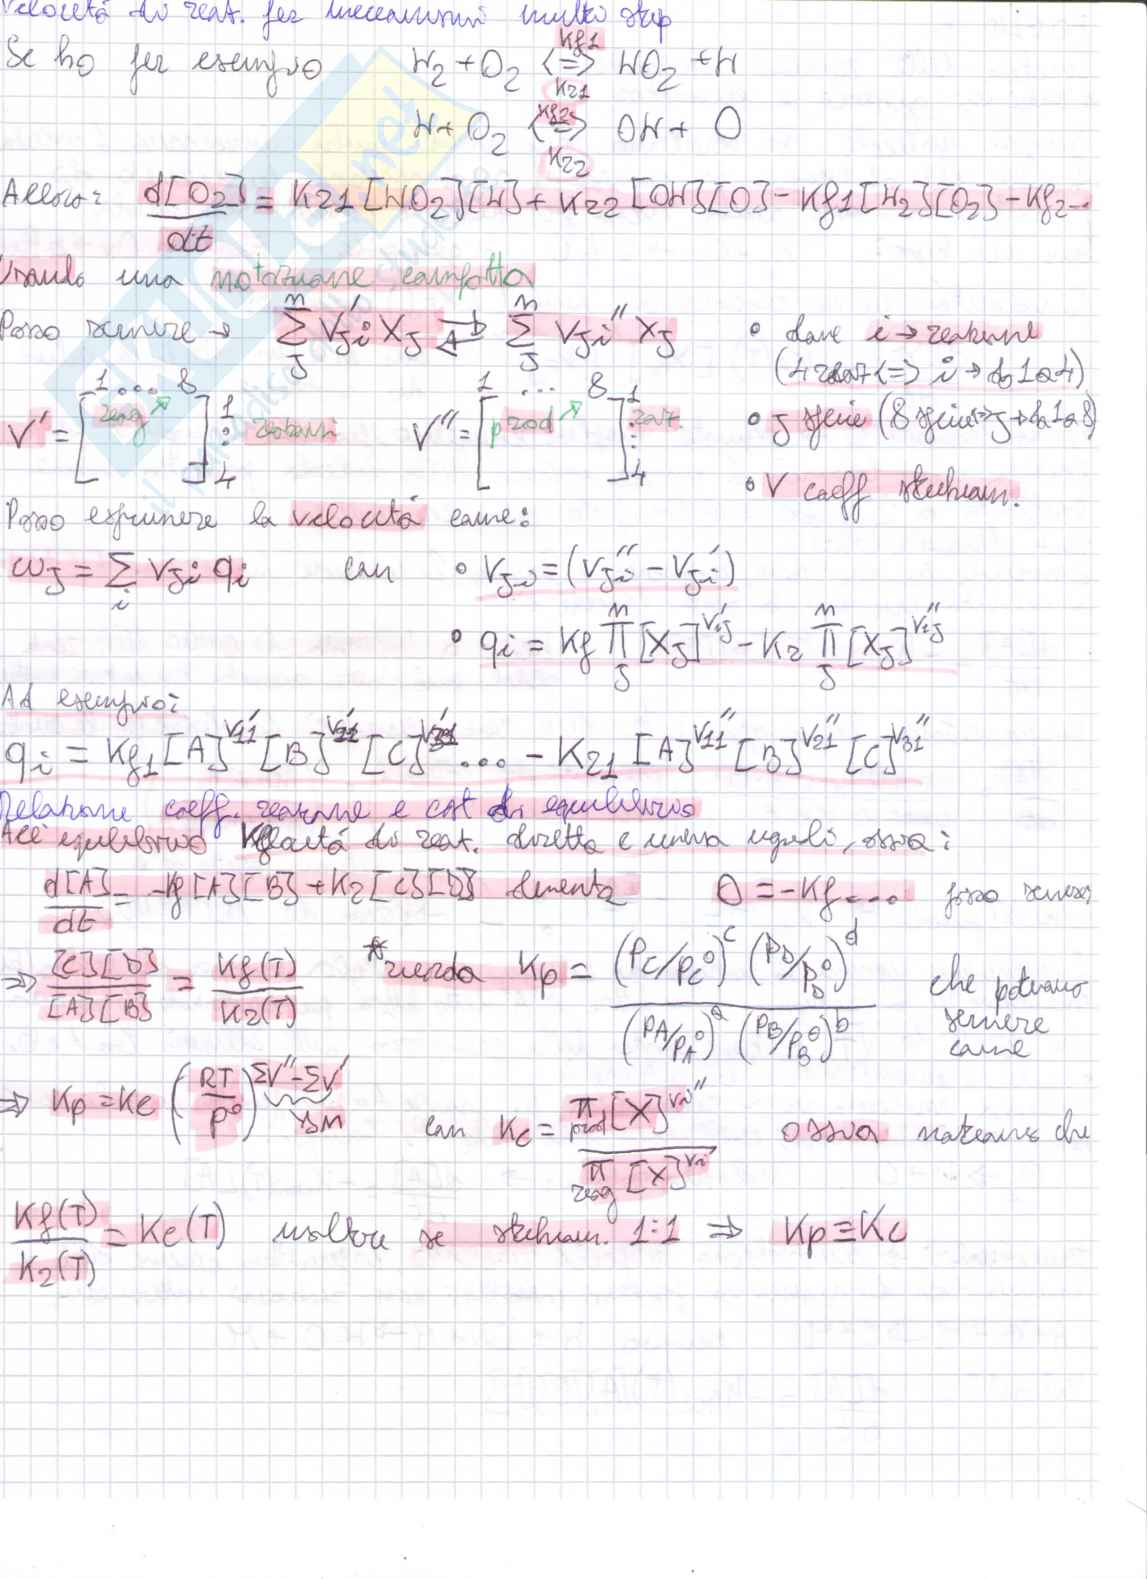 Velocità di reat. per meccanismi multi step
Se ho per esempio H2 + O2 <=> HO2 + H kf1 kr1
H + O2 <=> OH + O kf2 kr2
Allora: d[O2]/dt = Kr1 [HO2][H] + Kr2 [OH][O] - Kf1 [H2][O2] - Kf2...
Usando una notazione compatta
Posso scrivere → Σ_j^n Vji' Xj ⇄ Σ_j^n Vji'' Xj • dove i → reazione
(4 reaz <=> i → da 1 a 4)
V' = [1 .... 8 reag] 1 : 4 reazioni V'' = [1 ... 8 prod] 1 : 4 reaz. • j specie (8 specie => j → da 1 a 8)
• V coeff stechiom.
Posso esprimere la velocità come:
ωj = Σ_i Vji qi con • Vji = (Vji'' - Vji')
• qi = Kf Π_j^n [Xj]^Vij' - Kr Π_j^n [Xj]^Vij''
Ad esempio:
qi = Kf1 [A]^V11' [B]^V21' [C]^V31' ... - Kr1 [A]^V11'' [B]^V21'' [C]^V31''
Relazione coeff. reazione e cost di equilibrio
All'equilibrio velocità di reat. diretta e inversa uguali, ossia:
d[A]/dt = -Kf [A][B] + Kr [C][D] diventa 0 = -Kf.... posso scrivere
⇒ [C][D]/[A][B] = Kf(T)/Kr(T) * ricorda Kp = (PC/PC°)^c (PD/PD°)^d / (PA/PA°)^a (PB/PB°)^b che potevamo
scrivere
come
⇒ Kp = Kc (RT/P°)^ΣV''-ΣV' con Kc = Π prod [X]^Vi'' / Π reag [X]^Vi' ossia notiamo che
Kf(T)/Kr(T) = Kc(T) inoltre se stechiom. 1:1 ⇒ Kp ≡ Kc